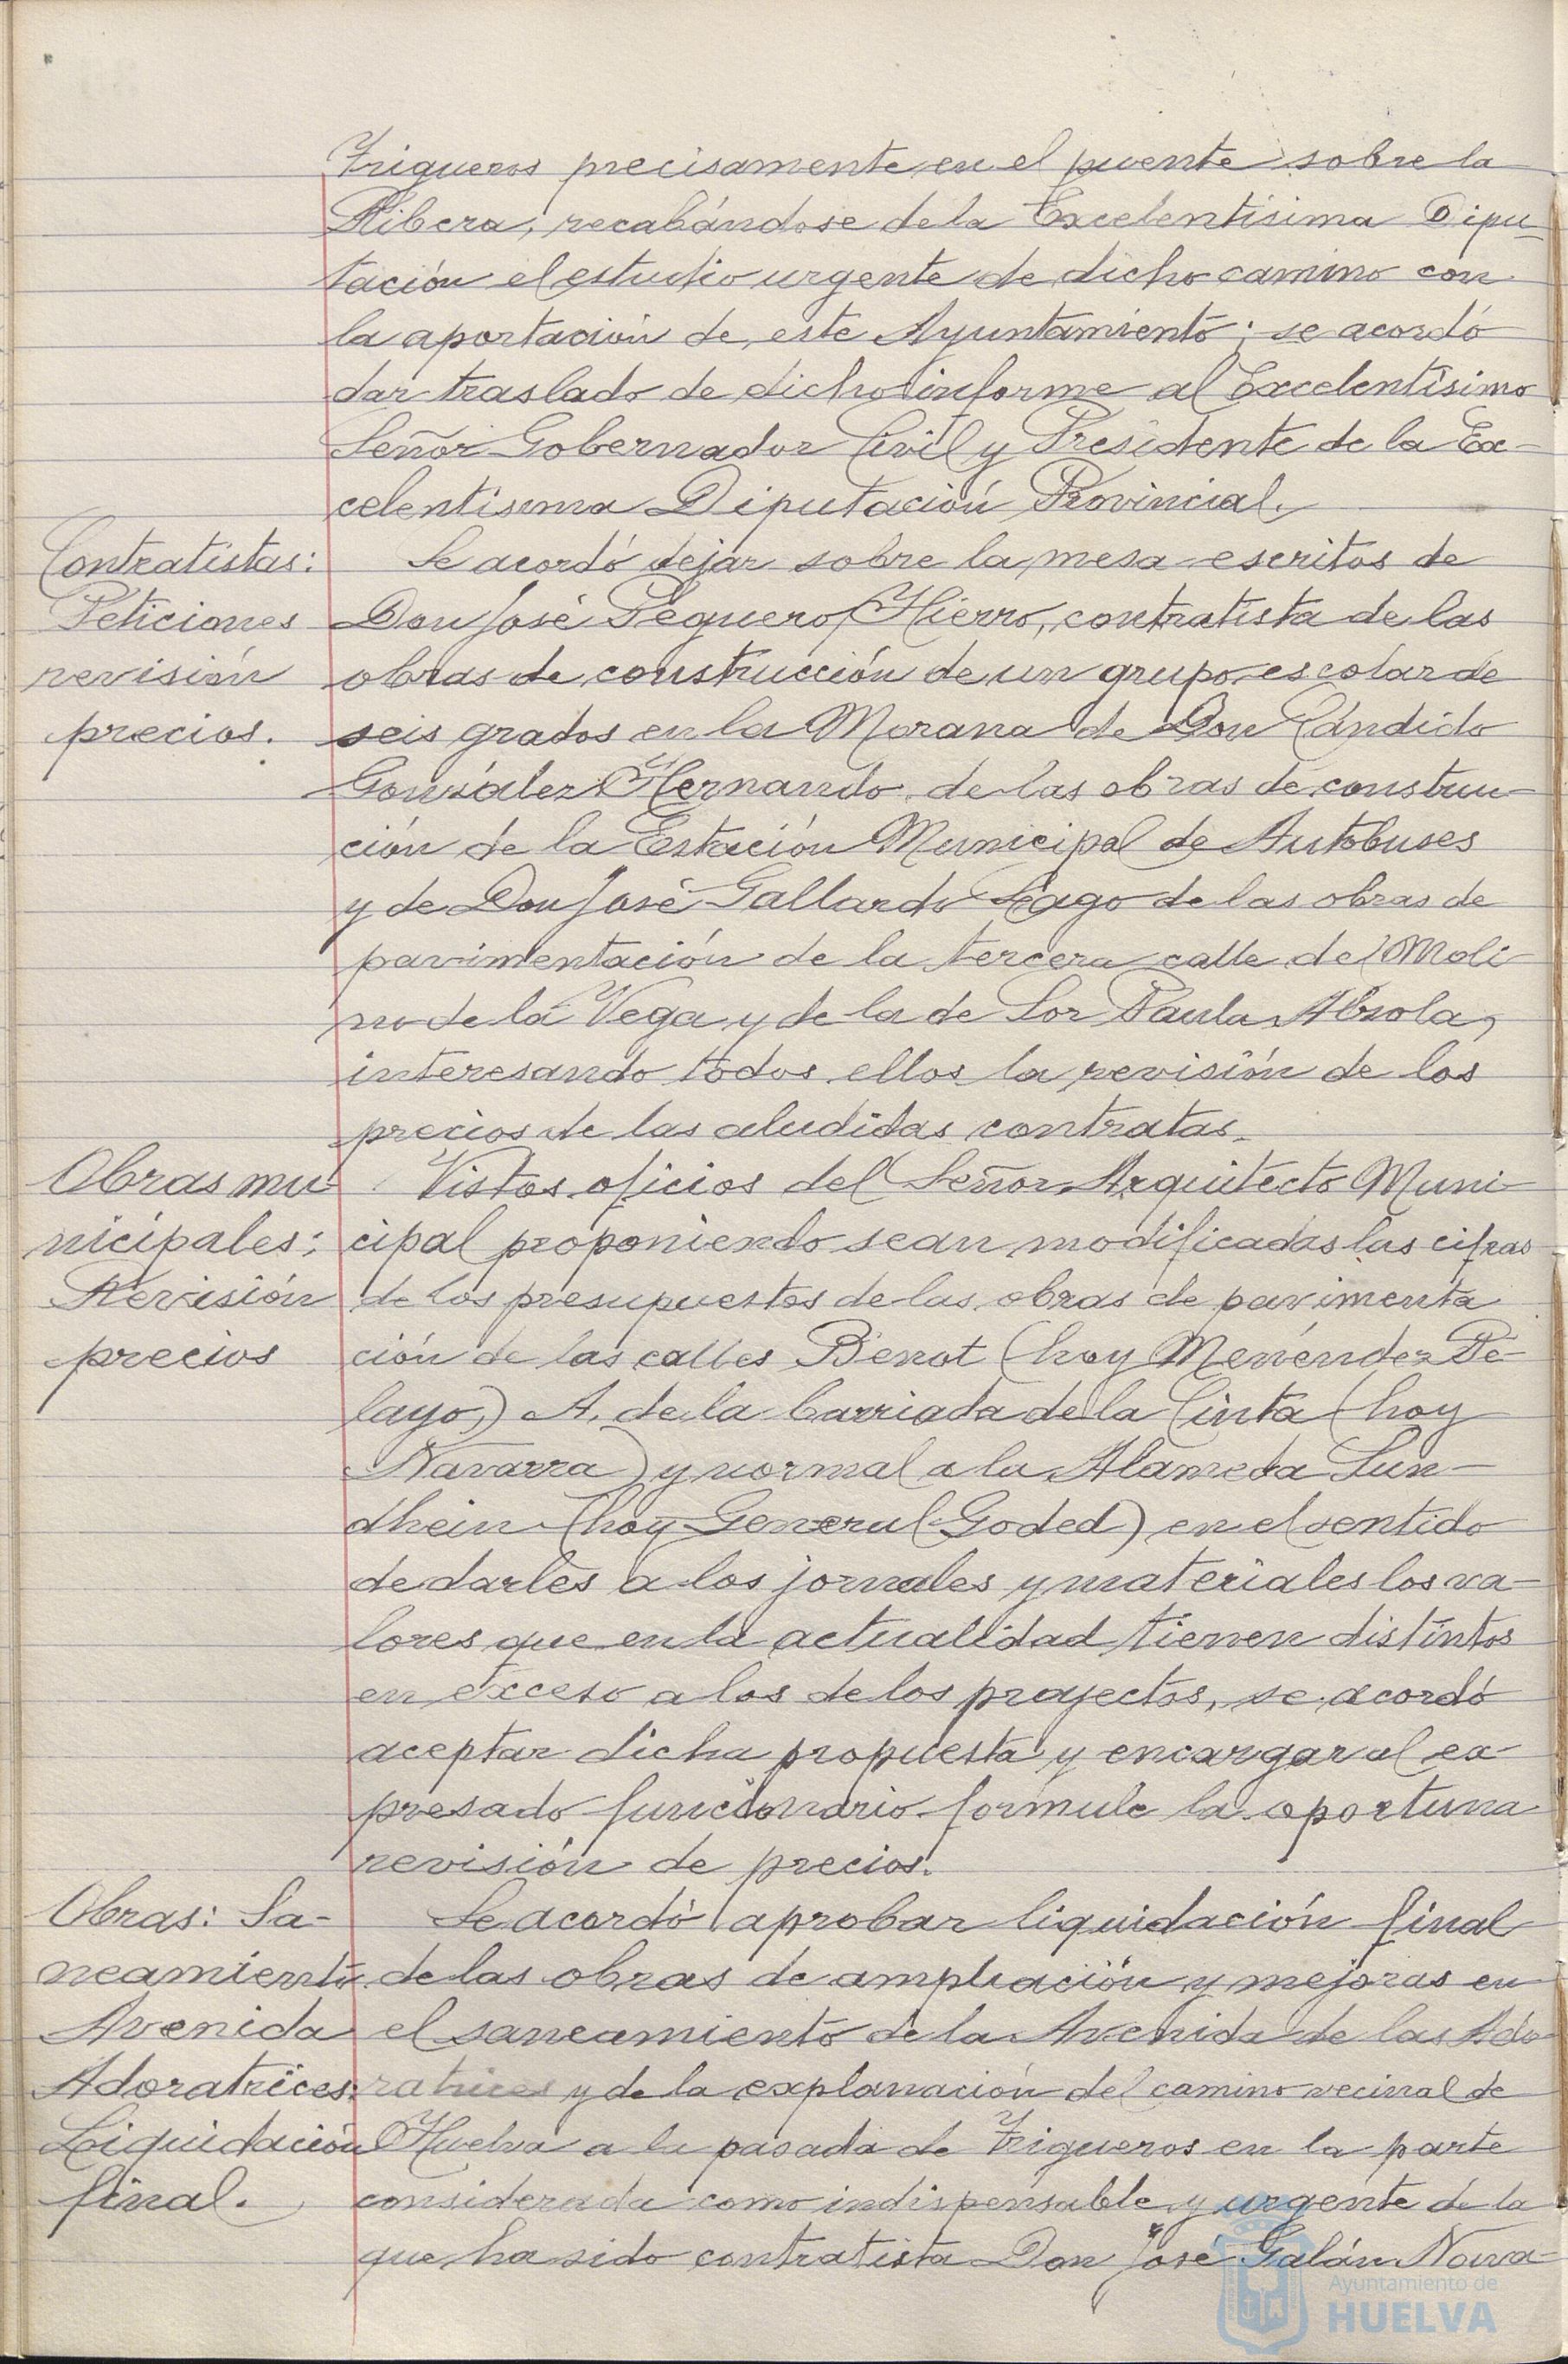 Trigueros precisamente en el puente sobre la
Ribera, recabándose de la Excelentísima Dipu-
tación el estudio urgente de dicho camino con
la aportación de este Ayuntamiento; se acordó
dar traslado de dicho informe al Excelentísimo
Señor Gobernador Civil y Presidente de la Ex-
celentísima Diputación Provincial.
Contratistas:
Peticiones
revisión
precios.
Se acordó dejar sobre la mesa escritos de
Don José Peguero Hierro, contratista de las
obras de construcción de un grupo escolar de
seis grados en la Morana de Don Cándido
González Hernando, de las obras de construc-
ción de la Estación Municipal de Autobuses
y de Don José Gallardo Lago de las obras de
pavimentación de la tercera calle del Moli-
no de la Vega y de la de Sor Paula Alzola,
interesando todos ellos la revisión de los
precios de las aludidas contratas.
Obras mu-
nicipales:
Revisión
precios
Vistos oficios del Señor Arquitecto Muni-
cipal proponiendo sean modificadas las cifras
de los presupuestos de las obras de pavimenta
ción de las calles Benot (hoy Menéndez Pe-
layo,) A. de la barriada de la Cinta (hoy
Navarra) y normal a la Alameda Sun-
dhein (hoy General Goded) en el sentido
de darles a los jornales y materiales los va-
lores que en la actualidad tienen distintos
en exceso a los de los proyectos, se acordó
aceptar dicha propuesta y encargar al ex-
presado funcionario formule la oportuna
revisión de precios.
Obras: Sa-
neamiento
Avenida
Adoratrices:
Liquidación
final.
Se acordó aprobar liquidación final
de las obras de ampliación y mejoras en
el saneamiento de la Avenida de las Ado-
ratrices y de la explanación del camino vecinal de
Huelva a la pasada de Trigueros en la parte
considerada como indispensable y urgente de la
que ha sido contratista Don José Galán Nava-
Ayuntamiento de
HUELVA